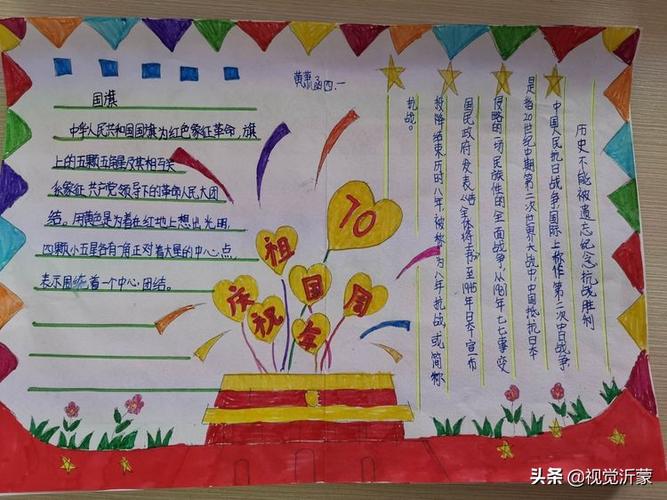 国旗
中华人民共和国国旗为红色象征革命,旗
上的五颗五角星及其相互关
系象征共产党领导下的革命人民大团
结。用黄色是为着在红地上想出光明,
四颗小五星各有一角正对着大星的中心点,
表示围绕着一个中心团结。
四.一
庆祝
祖国
70
周年
历史不能被遗忘纪念抗战胜利
中国人民抗日战争,国际上称作第二次中日战争
是指20世纪中期第二次世界大战中,中国抵抗日本
侵略的一场民族性的全面战争,从1931年七七事变
国民政府发表《告全体将士书》至1945年日本宣布
投降结束历时八年,被称为八年抗战或简称
抗战。
头条 @视觉沂蒙